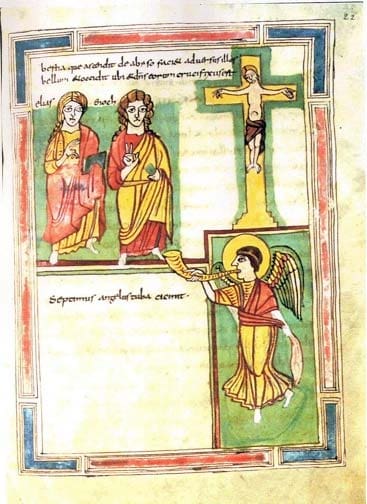 22
bestia que ascendit de abiso faciet adversus illos
bellum & occidit ubi & dns eorum crucifixus est
elias enoch
Septimus angelus tuba cicinit